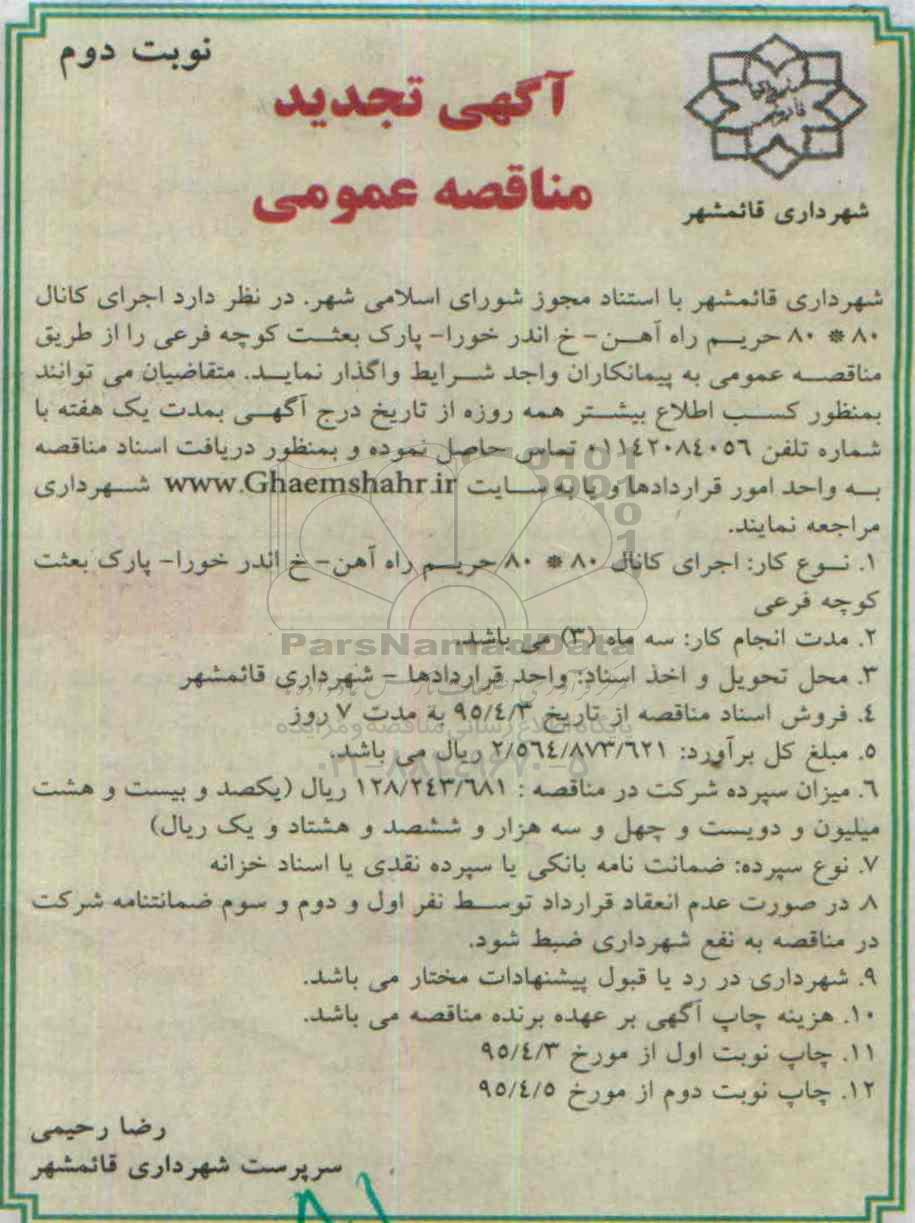 نوبت دوم
آگهی تجدید
مناقصه عمومی
شهرداری قائمشهر
شهرداری قائمشهر با استناد مجوز شورای اسلامی شهر. در نظر دارد اجرای کانال
۸۰ * ۸۰ حریم راه آهن- خ اندر خورا- پارک بعثت کوچه فرعی را از طریق
مناقصه عمومی به پیمانکاران واجد شرایط واگذار نماید. متقاضیان می توانند
بمنظور کسب اطلاع بیشتر همه روزه از تاریخ درج آگهی بمدت یک هفته با
شماره تلفن ۰۱۱۴۲۰۸۴۰۵۶ تماس حاصل نموده و بمنظور دریافت اسناد مناقصه
به واحد امور قراردادها و یا به سایت www.Ghaemshahr.ir شهرداری
مراجعه نمایند.
۱. نوع کار: اجرای کانال ۸۰ * ۸۰ حریم راه آهن- خ اندر خورا- پارک بعثت
کوچه فرعی
۲. مدت انجام کار: سه ماه (۳) می باشد.
ParsNamadData
۳. محل تحویل و اخذ اسناد: واحد قراردادها - شهرداری قائمشهر
۴. فروش اسناد مناقصه از تاریخ ۹۵/۴/۳ به مدت ۷ روز
پایگاه اطلاع رسانی مناقصه و مزایده
۵. مبلغ کل برآورد: ۲/۵۶۴/۸۷۳/۶۲۱ ریال می باشد.
۶. میزان سپرده شرکت در مناقصه : ۱۲۸/۲۴۳/۶۸۱ ریال (یکصد و بیست و هشت
میلیون و دویست و چهل و سه هزار و ششصد و هشتاد و یک ریال)
۷. نوع سپرده: ضمانت نامه بانکی یا سپرده نقدی یا اسناد خزانه
۸ در صورت عدم انعقاد قرارداد توسط نفر اول و دوم و سوم ضمانتنامه شرکت
در مناقصه به نفع شهرداری ضبط شود.
۹. شهرداری در رد یا قبول پیشنهادات مختار می باشد.
۱۰. هزینه چاپ آگهی بر عهده برنده مناقصه می باشد.
۱۱. چاپ نوبت اول از مورخ ۹۵/۴/۳
۱۲. چاپ نوبت دوم از مورخ ۹۵/۴/۵
رضا رحیمی
سرپرست شهرداری قائمشهر